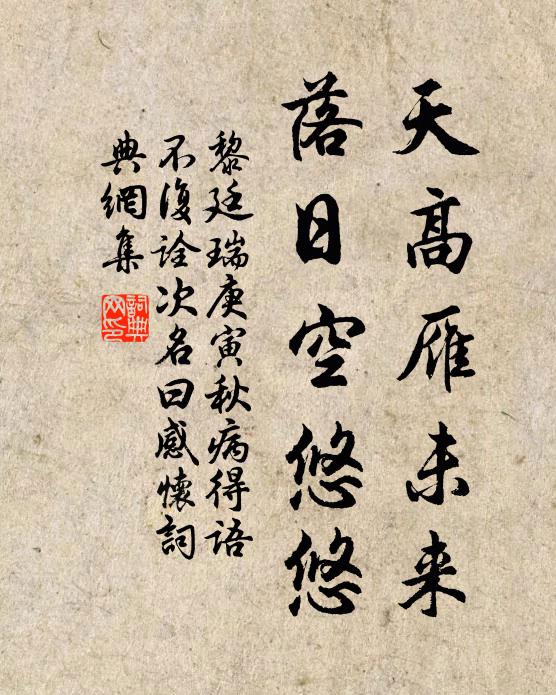 天高雁未来
落日空悠悠
黎廷瑞庚寅秋病得语
不復诠次名曰感懷詞
典網集
詞典
网印